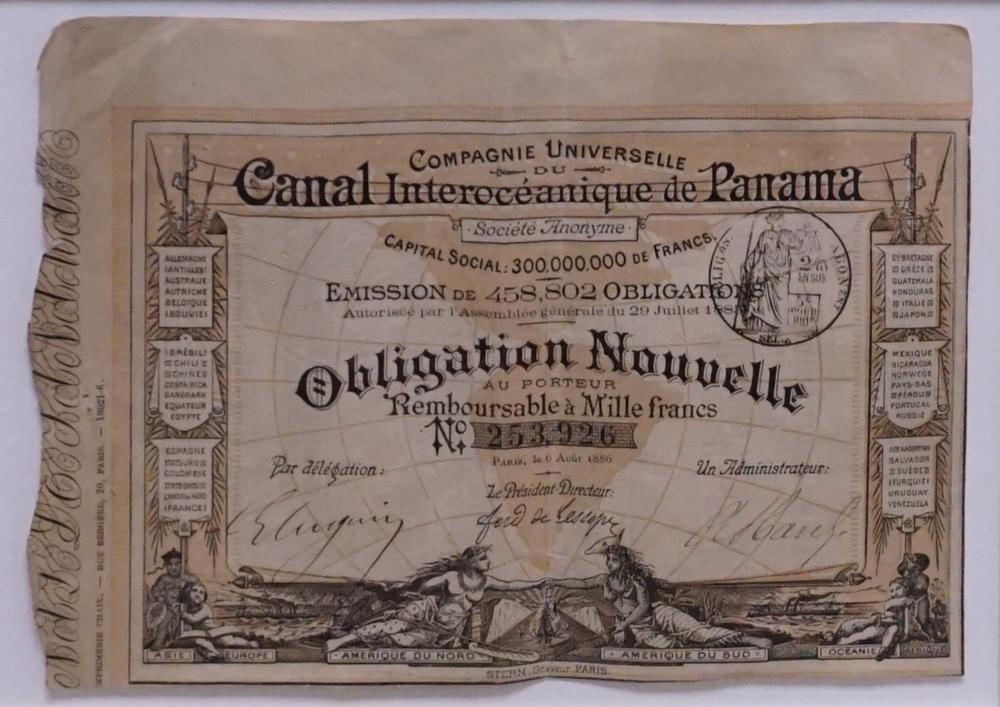 COMPAGNIE UNIVERSELLE
DU
Canal Interocéanique de Panama
Société Anonyme
CAPITAL SOCIAL: 300.000.000 DE FRANCS.
EMISSION DE 458,802 OBLIGATIONS
Autorisée par l'Assemblée générale du 29 Juillet
Obligation Nouvelle
AU PORTEUR
Remboursable à Mille francs
No. 253,926
PARIS, le 6 Août 1886
Par délégation:
Un Administrateur:
Le Président-Directeur:
ferd de Lesseps
ALLEMAGNE
ANTILLES
AUSTRALIE
AUTRICHE
BELGIQUE
BOLIVIE
BRÉSIL
CHILI
CHINE
COSTA RICA
DANEMARK
EQUATEUR
EGYPTE
ESPAGNE
COLOMBIE
FRANCE
GDE BRETAGNE
GRÈCE
GUATEMALA
HONDURAS
ITALIE
JAPON
MEXIQUE
NICARAGUA
NORWEGE
PAYS-BAS
PÉROU
PORTUGAL
RUSSIE
SALVADOR
SUÈDE
TURQUIE
URUGUAY
VENEZUELA
2/10
EN SUS
ASIE
EUROPE
AMERIQUE DU NORD
AMERIQUE DU SUD
OCEANIE
STERN, Graveur PARIS.
IMPRIMERIE CHAIX, — RUE BERGÈRE, 20, PARIS. — 18021-6.